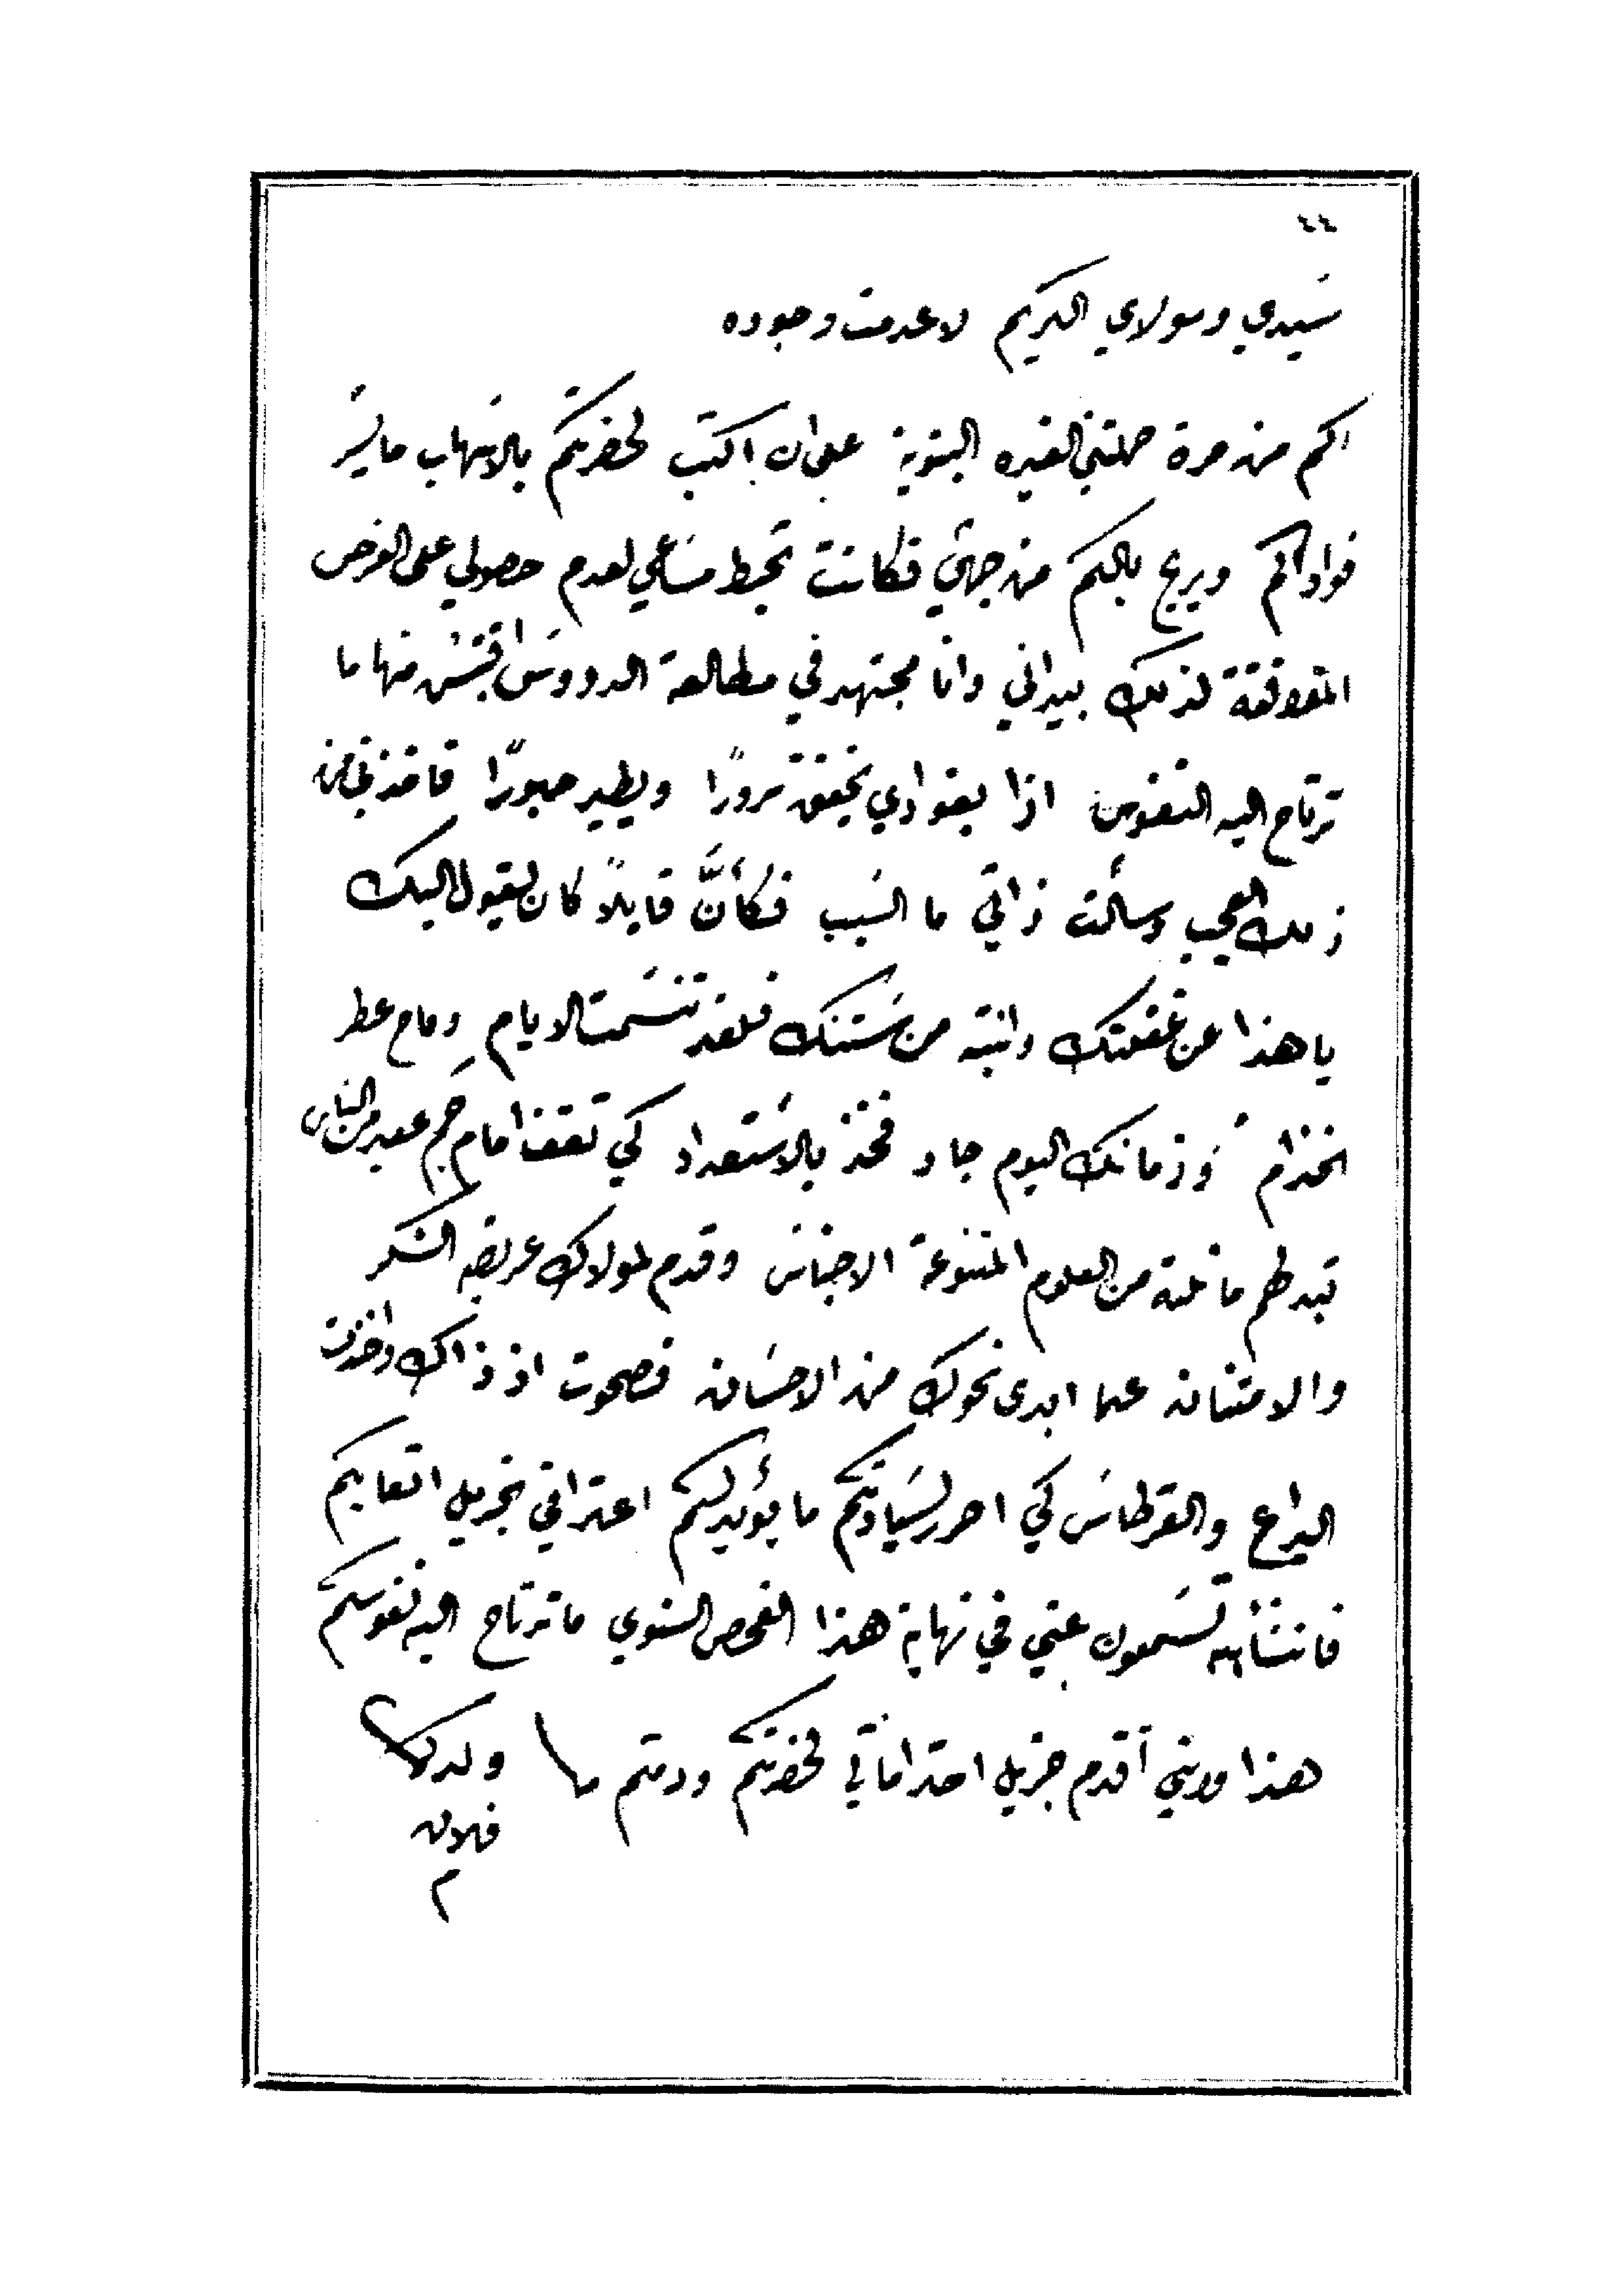 ٤٤
سيدي ومولاي الكريم لا عدمت وجوده
اكم من مرة حملتني الغيره البنوية على ان اكتب لحضرتكم بالاسهاب ما يسر
فوادكم ويريح بالكم من جهتي فكانت تحبط مساعي لعدم حصولي على الفرص
الموافقة لذلك بيد اني وانا مجتهد في مطالعة الدروس اقتبس منها ما
ترتاح اليه النفوس اذا بفوادي يخفق سرورًا ويطير حبورًا فاخذني من
ذلك العجب وسألت ذاتي ما السبب فكأنَّ قايلًا كان يقول اليك
يا هذا عن غفلتك وانتبه من سنتك فلقد تنسمت الايام وفاح عطر
الخزام وزمانك اليوم جاد فخذ بالاستعداد كي تقف امام جم عديد من الناس
تبد لهم ما نلته من العلوم المتنوعة الاجناس وقدم لمولاك عريضة الشكر
والامتنان عما ابدى نحوك من الاحسان فصحوت اذ ذاك واخذت
اليراع والقرطاس كي احرر لسيادتكم ما يؤيد لكم اعترافي بجزيل اتعابكم
فانشالله تسمعون عني في نهاية هذا الفحص السنوي ما ترتاح اليه نفوسكم
هذا وانني أقدم جزيل احتراماتي لحضرتكم ودمتم
ولدكم
فلان
م